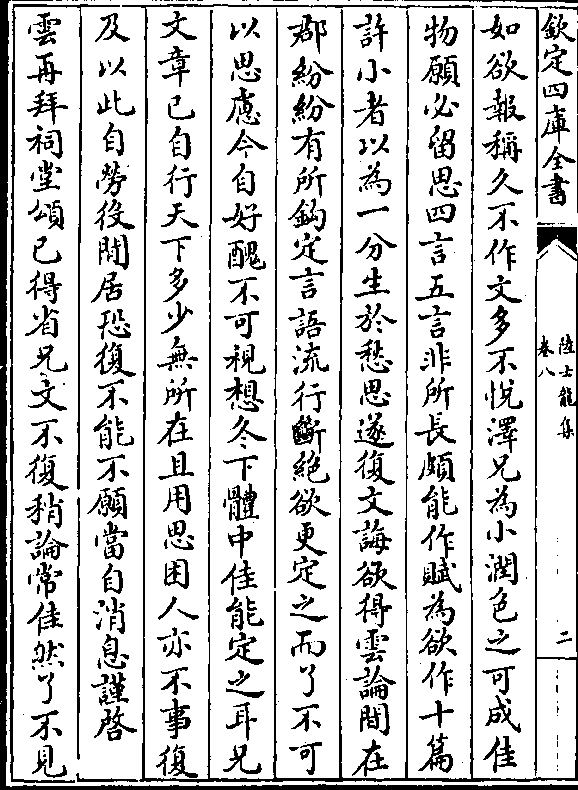 欽定四庫全書
陸士龍集
卷八
二
如欲報稱久不作文多不悅澤兄為小潤色之可成佳
物願必留思四言五言非所長頗能作賦為欲作十篇
許小者以為一分生於愁思遂復文誨欲得雲論間在
郡紛紛有所鈎定言語流行斷絶欲更定之而了不可
以思慮今自好醜不可視想冬下體中佳能定之耳兄
文章已自行天下多少無所在且用思困人亦不事復
及以此自勞役間居恐復不能不願當自消息謹啓
雲再拜祠堂頌已得省兄文不復稍論常佳然了不見